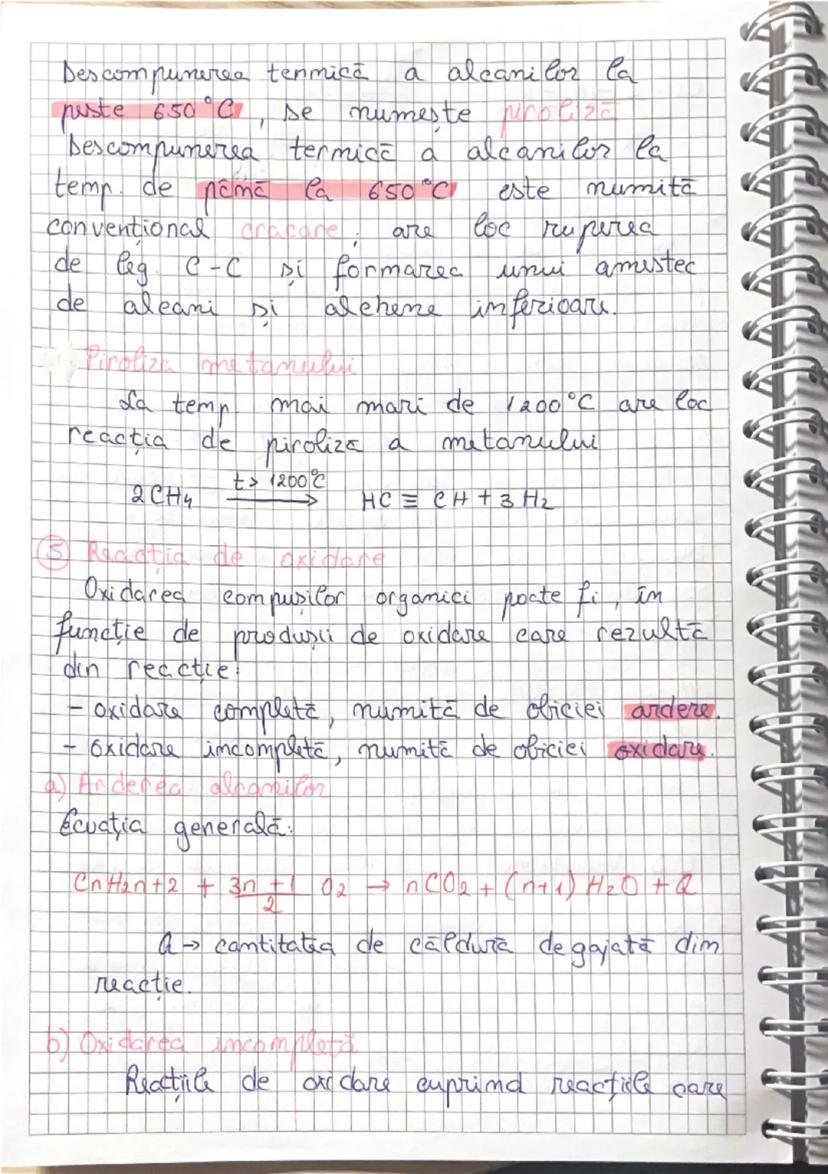 Descompunerea termică a alcanilor la
peste 650°C, se numește piroliză
Descompunerea termică a alcanilor la
temp. de până la 650°C este numită
convențional cracare; are loc ruperea
de leg. C-C și formarea unui amestec
de alcani și alchene inferioare.
Piroliza metanului
La temp. mai mari de 1200°C are loc
reacția de piroliză a metanului
2CH₄ t> 1200°C → HC ≡ CH + 3 H₂
⑤ Reacția de oxidare
Oxidarea compușilor organici poate fi, în
funcție de produșii de oxidare care rezultă
din reacție:
- oxidare completă, numită de obicei ardere.
- oxidare incompletă, numită de obicei oxidare.
a) Arderea alcanilor
Ecuația generală:
CnH2n+2 + (3n+1)/2 O₂ → nCO₂ + (n+1) H₂O + Q
Q → cantitatea de căldură degajată din
reacție.
b) Oxidarea incompletă
Reacțiile de oxidare cuprind reacțiile care